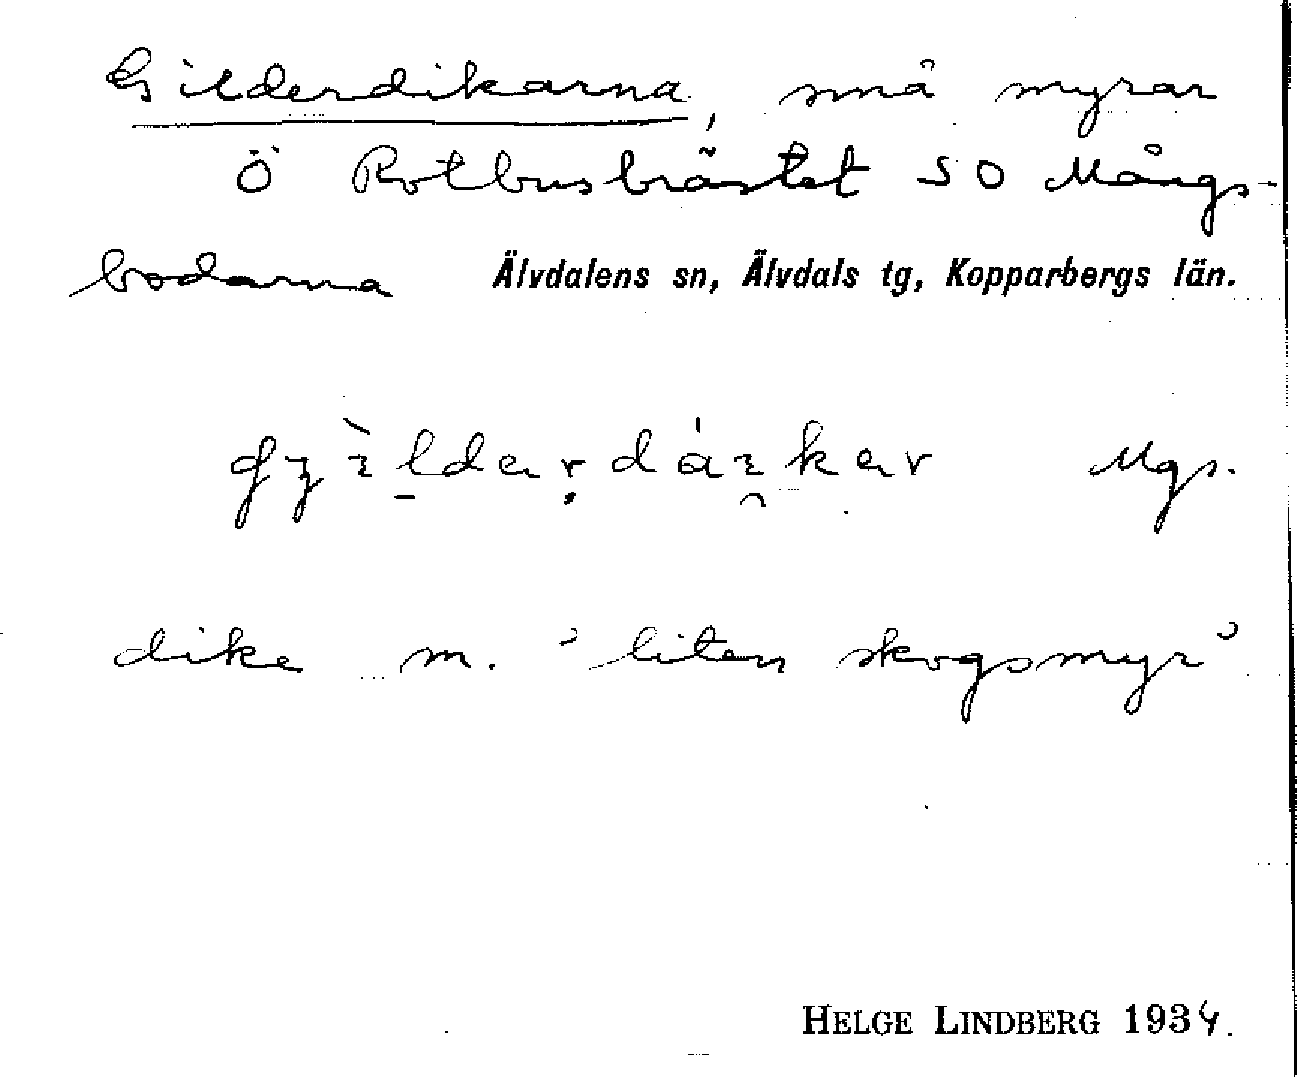 Gilderdikarna, små myrar
Ö Rotbusbrästet SO Mångs-
bodarna Älvdalens sn, Älvdals tg, Kopparbergs län.
Mgs.
dike m. ’liten skogsmyr’
HELGE LINDBERG 1934.